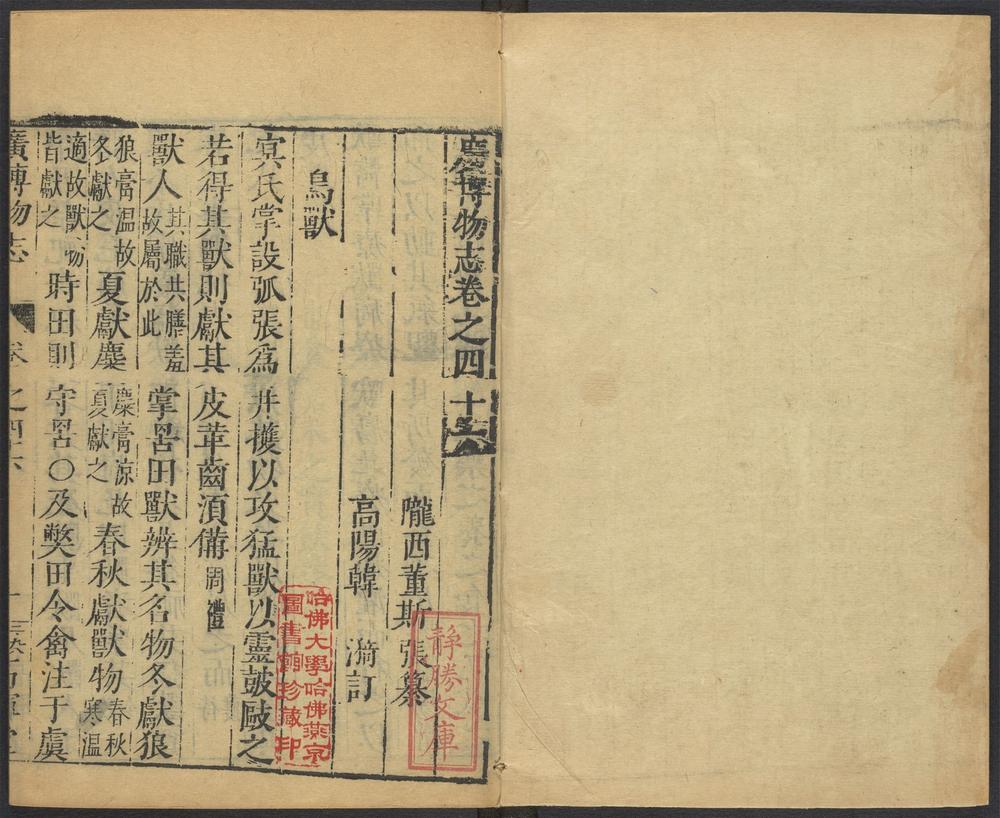 廣博物志卷之四十六
隴西董斯張纂
高陽韓滳訂
鳥獸
宾氏掌設弧張爲井擭以攻猛獸以靈鼓敺之
若得其獸則獻其皮革齒湏備周禮
獸人其職共膳羞故屬於此掌罟田獸辨其名物冬獻狼
狼膏温故冬獻之夏獻麋麋膏凉故夏獻之春秋獻獸物春秋寒温
適故獸物皆獻之時田則守罟〇及獘田令禽注于虞
廣博物志
卷之四十六
一
靜勝文庫
哈佛大學哈佛燕京
圖書館珍藏印